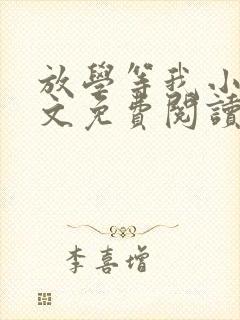 放學等我 小
文免費閱讀
李喜增